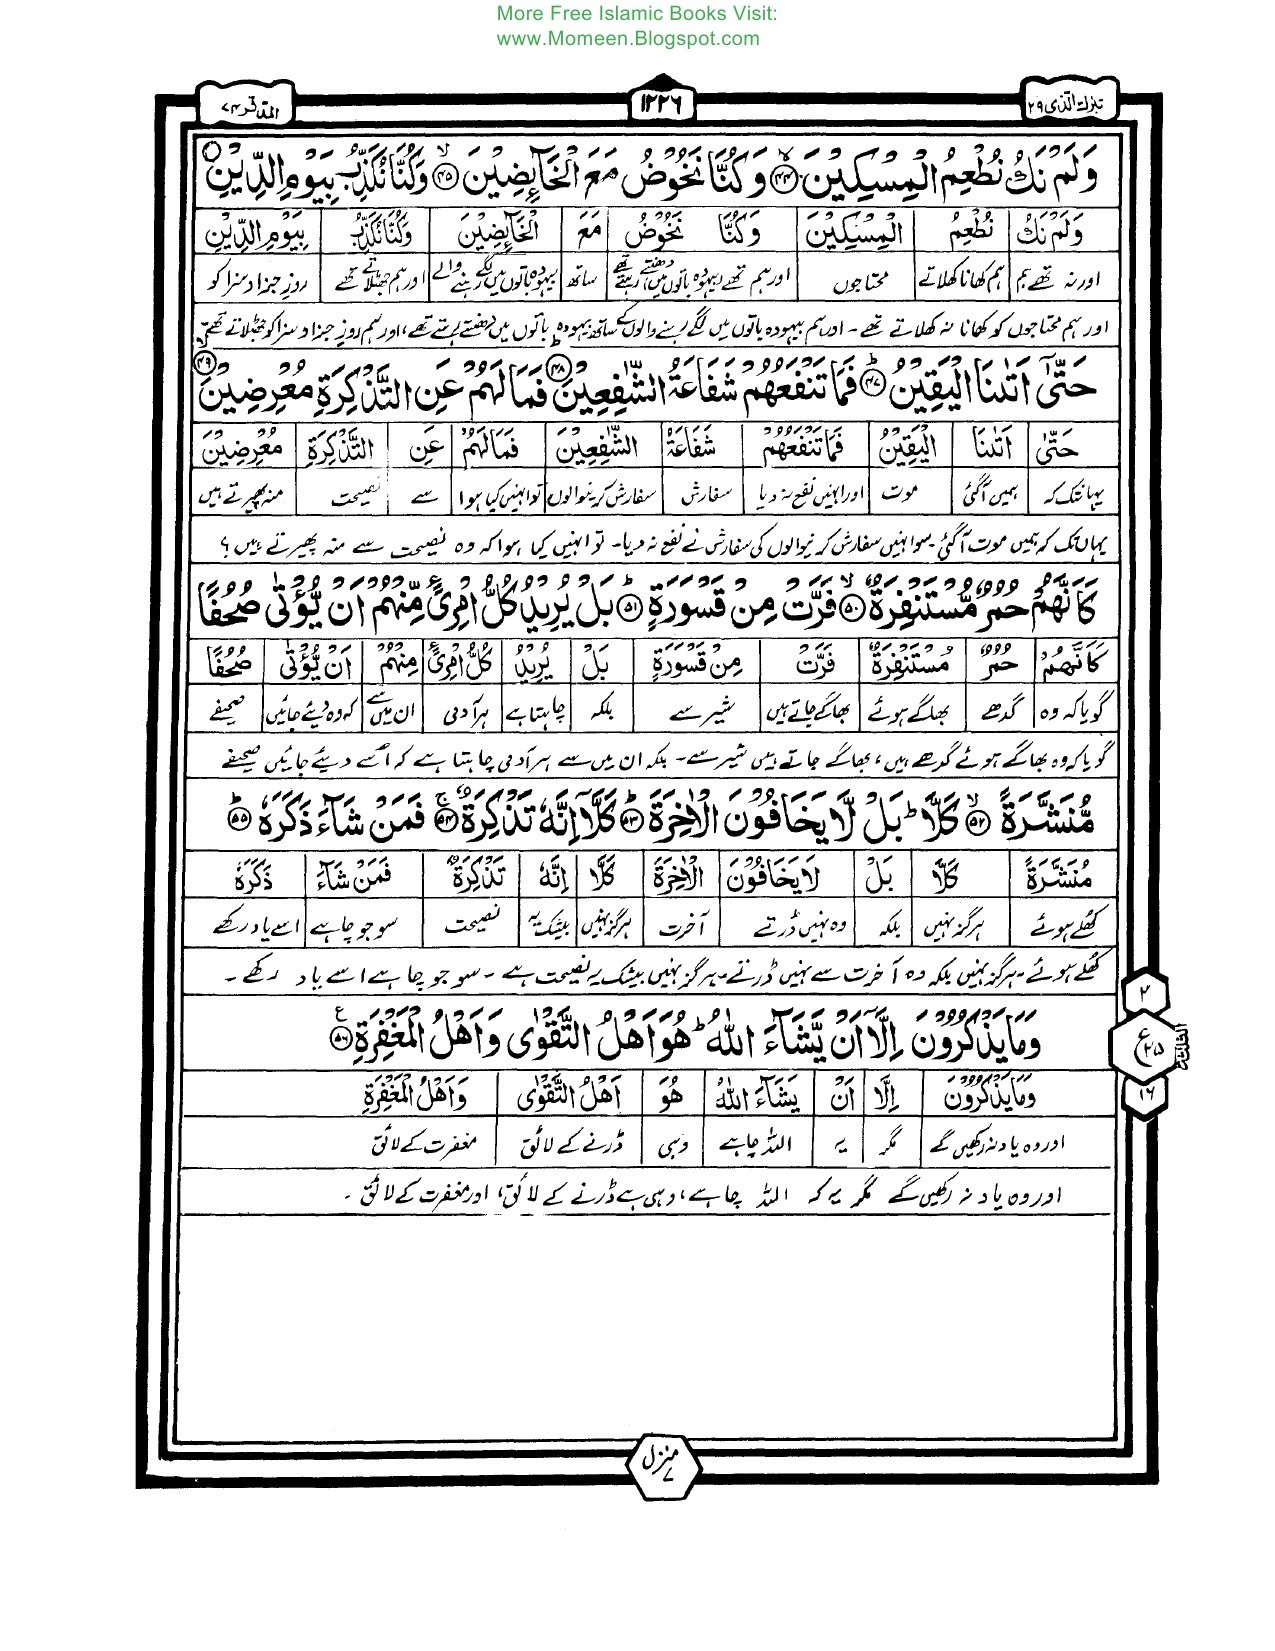 More Free Islamic Books Visit:
www.Momeen.Blogspot.com
تبٰرك الذی ۲۹
۱۲۲۶
المدثر ۷۴
وَلَمْ نَكُ نُطْعِمُ الْمِسْكِيْنَ ۴۴ وَكُنَّا نَخُوْضُ مَعَ الْخَآئِضِيْنَ ۴۵ وَكُنَّا نُكَذِّبُ بِيَوْمِ الدِّيْنِ
وَلَمْ نَكُ نُطْعِمُ الْمِسْكِيْنَ وَكُنَّا نَخُوْضُ مَعَ الْخَآئِضِيْنَ وَكُنَّا نُكَذِّبُ بِيَوْمِ الدِّيْنِ
اور نہ تھے ہم ہم کھانا کھلاتے محتاجوں اور ہم تھے بیہودہ باتوں میں دھنستے رہتے تھے ساتھ بیہودہ باتوں میں لگے رہنے والے اور ہم جھٹلاتے تھے روزِ جزا و سزا کو
اور ہم محتاجوں کو کھانا نہ کھلاتے تھے۔ اور ہم بیہودہ باتوں میں لگے رہنے والوں کے ساتھ بیہودہ باتوں میں دھنستے رہتے تھے، اور ہم روزِ جزا و سزا کو جھٹلاتے تھے
حَتّٰۤى اَتٰىنَا الْيَقِيْنُ ۴۷ فَمَا تَنْفَعُهُمْ شَفَاعَةُ الشّٰفِعِيْنَ ۴۸ فَمَا لَهُمْ عَنِ التَّذْكِرَةِ مُعْرِضِيْنَ ۴۹
حَتّٰى اَتٰىنَا الْيَقِيْنُ فَمَا تَنْفَعُهُمْ شَفَاعَةُ الشّٰفِعِيْنَ فَمَا لَهُمْ عَنِ التَّذْكِرَةِ مُعْرِضِيْنَ
یہانتک کہ ہمیں آگئی موت اور انہیں نفع نہ دیا سفارش سفارش کرنیوالوں تو انہیں کیا ہوا سے نصیحت منہ پھیرتے ہیں
یہاں تک کہ ہمیں موت آگئی۔ سو انہیں سفارش کرنیوالوں کی سفارش نے نفع نہ دیا۔ تو انہیں کیا ہوا کہ وہ نصیحت سے منہ پھیرتے ہیں؟
كَاَنَّهُمْ حُمُرٌ مُّسْتَنْفِرَةٌ ۵۰ فَرَّتْ مِنْ قَسْوَرَةٍ ۵۱ بَلْ يُرِيْدُ كُلُّ امْرِئٍ مِّنْهُمْ اَنْ يُّؤْتٰى صُحُفًا
كَاَنَّهُمْ حُمُرٌ مُّسْتَنْفِرَةٌ فَرَّتْ مِنْ قَسْوَرَةٍ بَلْ يُرِيْدُ كُلُّ امْرِئٍ مِنْهُمْ اَنْ يُّؤْتٰى صُحُفًا
گویا کہ وہ گدھے بھاگے ہوئے بھاگے جاتے ہیں شیر سے بلکہ چاہتا ہے ہر آدمی ان میں سے کہ وہ دیئے جائیں صحیفے
گویا کہ وہ بھاگے ہوئے گدھے ہیں، بھاگے جاتے ہیں شیر سے۔ بلکہ ان میں سے ہر آدمی چاہتا ہے کہ اُسے دیئے جائیں صحیفے
مُّنَشَّرَةً ۵۲ كَلَّا بَلْ لَّا يَخَافُوْنَ الْاٰخِرَةَ ۵۳ كَلَّاۤ اِنَّهٗ تَذْكِرَةٌ ۵۴ فَمَنْ شَآءَ ذَكَرَهٗ ۵۵
مُنَشَّرَةً كَلَّا بَلْ لَا يَخَافُوْنَ الْاٰخِرَةَ كَلَّا اِنَّهٗ تَذْكِرَةٌ فَمَنْ شَآءَ ذَكَرَهٗ
کھلے ہوئے ہرگز نہیں بلکہ وہ نہیں ڈرتے آخرت ہرگز نہیں بیشک یہ نصیحت سو جو چاہے اسے یاد رکھے
کھلے ہوئے۔ ہرگز نہیں بلکہ وہ آخرت سے نہیں ڈرتے۔ ہرگز نہیں بیشک یہ نصیحت ہے۔ سو جو چاہے اسے یاد رکھے۔
وَمَا يَذْكُرُوْنَ اِلَّاۤ اَنْ يَّشَآءَ اللّٰهُ هُوَ اَهْلُ التَّقْوٰى وَاَهْلُ الْمَغْفِرَةِ ۵۶
وَمَا يَذْكُرُوْنَ اِلَّا اَنْ يَشَآءَ اللّٰهُ هُوَ اَهْلُ التَّقْوٰى وَاَهْلُ الْمَغْفِرَةِ
اور وہ یاد نہ رکھیں گے مگر یہ اللہ چاہے وہی ڈرنے کے لائق مغفرت کے لائق
اور وہ یاد نہ رکھیں گے مگر یہ کہ اللہ چاہے، وہی ہے ڈرنے کے لائق، اور مغفرت کے لائق۔
۲
ع
۲۵
۱۶
الثلثة
منزل
۷